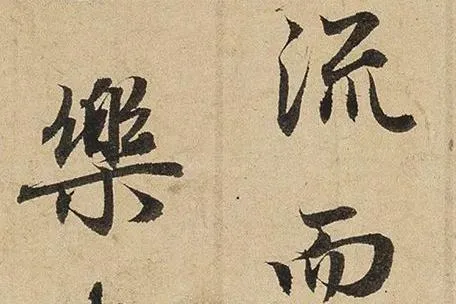 流而
樂